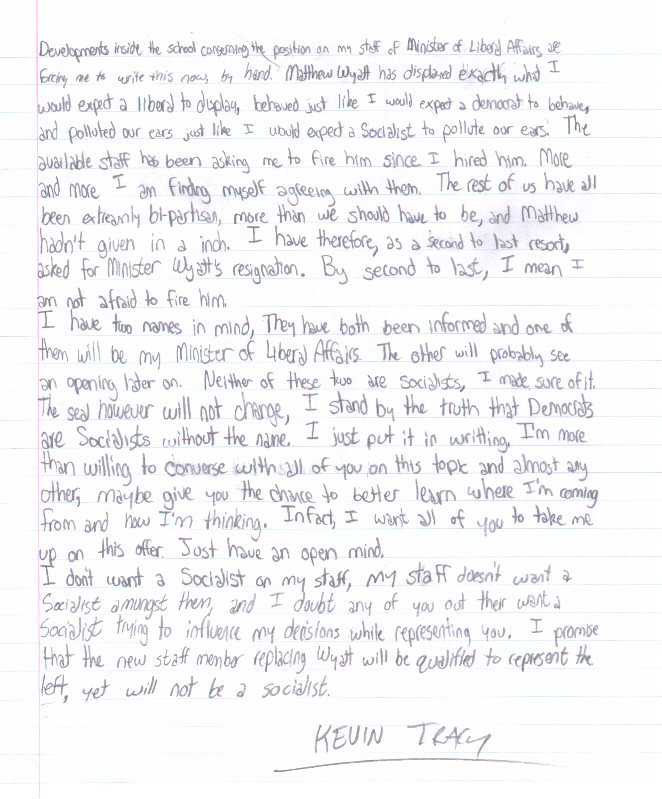 Developments inside the school concerning the position on my staff of Minister of Liberal Affairs are
forcing me to write this news by hand. Matthew Wyatt has displayed exactly what I
would expect a liberal to display, behaved just like I would expect a democrat to behave,
and polluted our ears just like I would expect a Socialist to pollute our ears. The
available staff has been asking me to fire him since I hired him. More
and more I am finding myself agreeing with them. The rest of us have all
been extreamly bi-partisan, more than we should have to be, and Matthew
hadn't given in a inch. I have therefore, as a second to last resort,
asked for Minister Wyatt's resignation. By second to last, I mean I
am not afraid to fire him.
I have two names in mind, They have both been informed and one of
them will be my Minister of Liberal Affairs. The other will probably see
an opening later on. Neither of these two are socialists, I made sure of it.
The seal however will not change, I stand by the truth that Democrats
are Socialists without the name. I just put it in writting. I'm more
than willing to converse with all of you on this topic and almost any
other, maybe give you the chance to better learn where I'm coming
from and how I'm thinking. Infact, I want all of you to take me
up on this offer. Just have an open mind.
I don't want a Socialist on my staff, my staff doesn't want a
Socialist amungst them, and I doubt any of you out their want a
Socialist trying to influence my decisions while representing you. I promise
that the new staff member replacing Wyatt will be qualified to represent the
left, yet will not be a socialist.
KEVIN TRACY